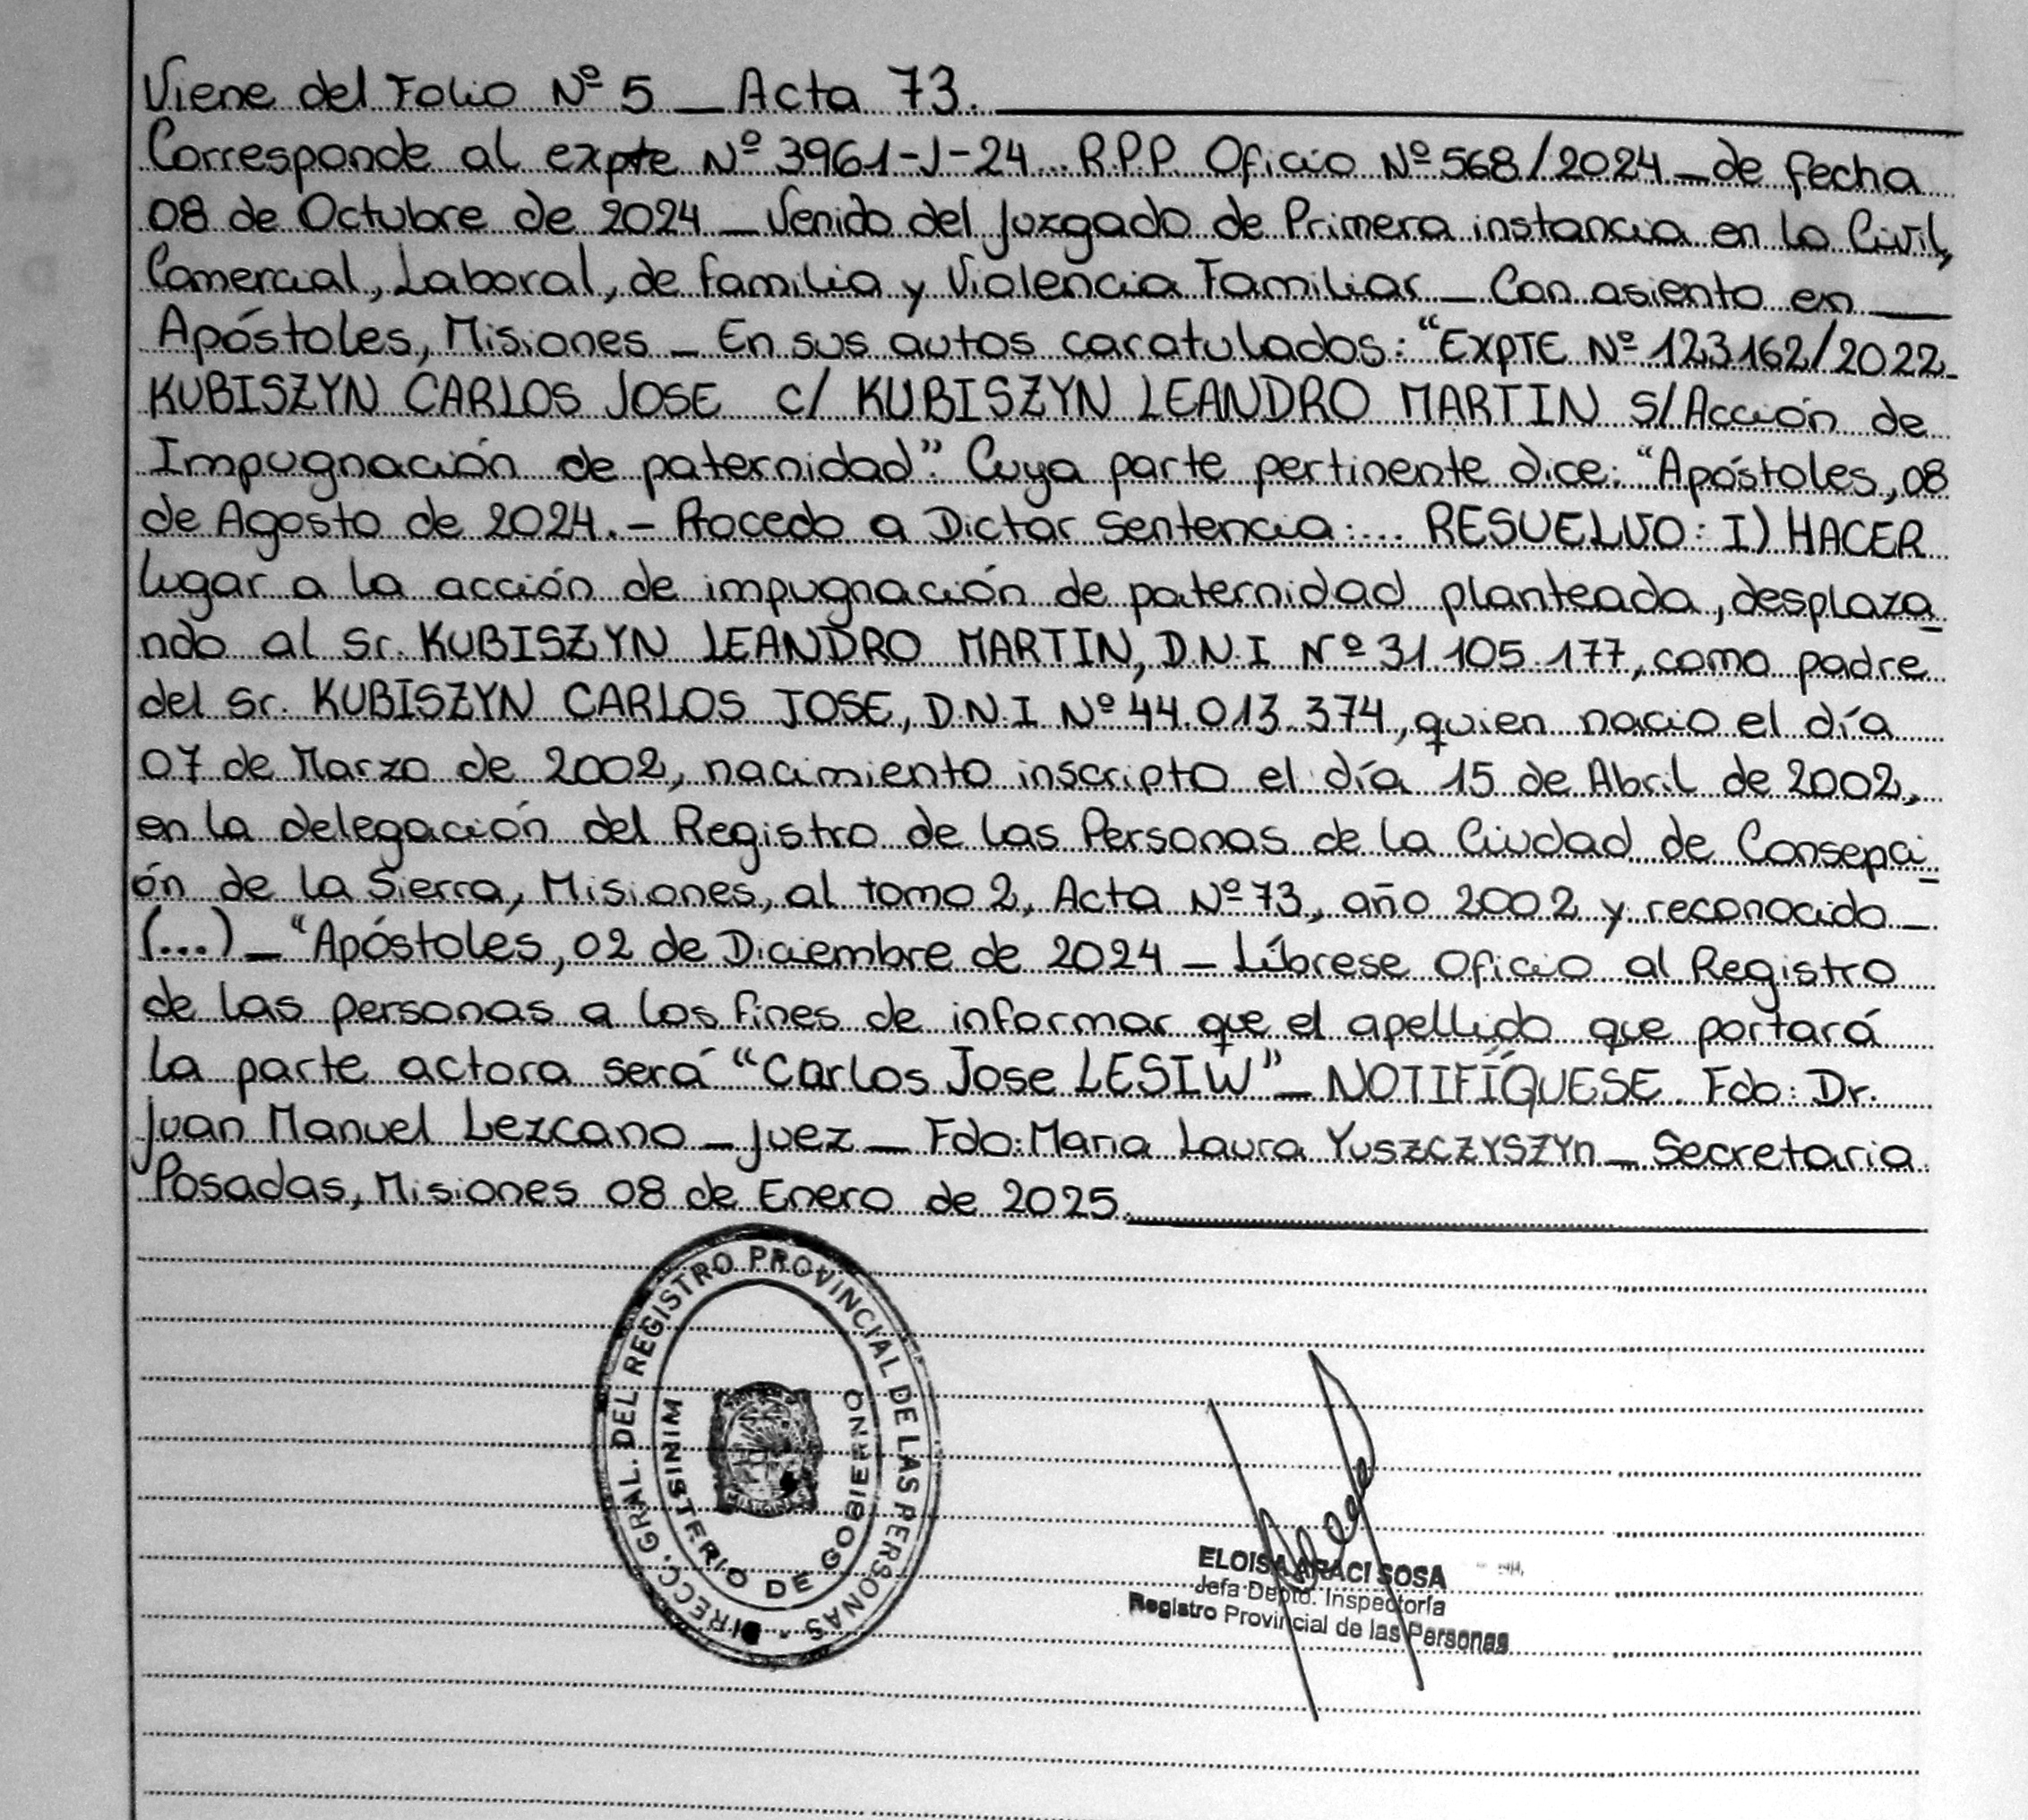 Viene del Folio Nº 5 _ Acta 73.
Corresponde al expte Nº 3961-J-24... R.P.P. Oficio Nº 568/2024 _ de fecha
08 de Octubre de 2024 _ Venido del Juzgado de Primera instancia en lo Civil,
Comercial, Laboral, de familia y Violencia Familiar _ Con asiento en _
Apóstoles, Misiones _ En sus autos caratulados: "EXPTE Nº 123162/2022_
KUBISZYN CARLOS JOSE c/ KUBISZYN LEANDRO MARTIN S/Acción de
Impugnación de paternidad". Cuya parte pertinente dice: "Apóstoles, 08
de Agosto de 2024.- Procedo a Dictar Sentencia:... RESUELVO: I) HACER
lugar a la acción de impugnación de paternidad planteada, desplaza_
ndo al Sr. KUBISZYN LEANDRO MARTIN, D.N.I Nº 31.105.177, como padre
del Sr. KUBISZYN CARLOS JOSE, D.N.I Nº 44.013.374, quien nacio el día
07 de Marzo de 2002, nacimiento inscripto el día 15 de Abril de 2002,
en la delegación del Registro de las Personas de la Ciudad de Consepci_
ón de la Sierra, Misiones, al tomo 2, Acta Nº 73, año 2002 y reconocido _
(...) _ "Apóstoles, 02 de Diciembre de 2024 _ Líbrese Oficio al Registro
de las personas a los fines de informar que el apellido que portará
la parte actora será "Carlos Jose LESIW" _ NOTIFÍQUESE. Fdo: Dr.
Juan Manuel Lezcano _ Juez _ Fdo: Maria Laura YUSZCZYSZYn _ Secretaria
Posadas, Misiones 08 de Enero de 2025.
DIRECC. GRAL. DEL REGISTRO PROVINCIAL DE LAS PERSONAS -
MINISTERIO DE GOBIERNO
MISIONES
ELOISA ARACI SOSA
Jefa Depto. Inspectoría
Registro Provincial de las Personas